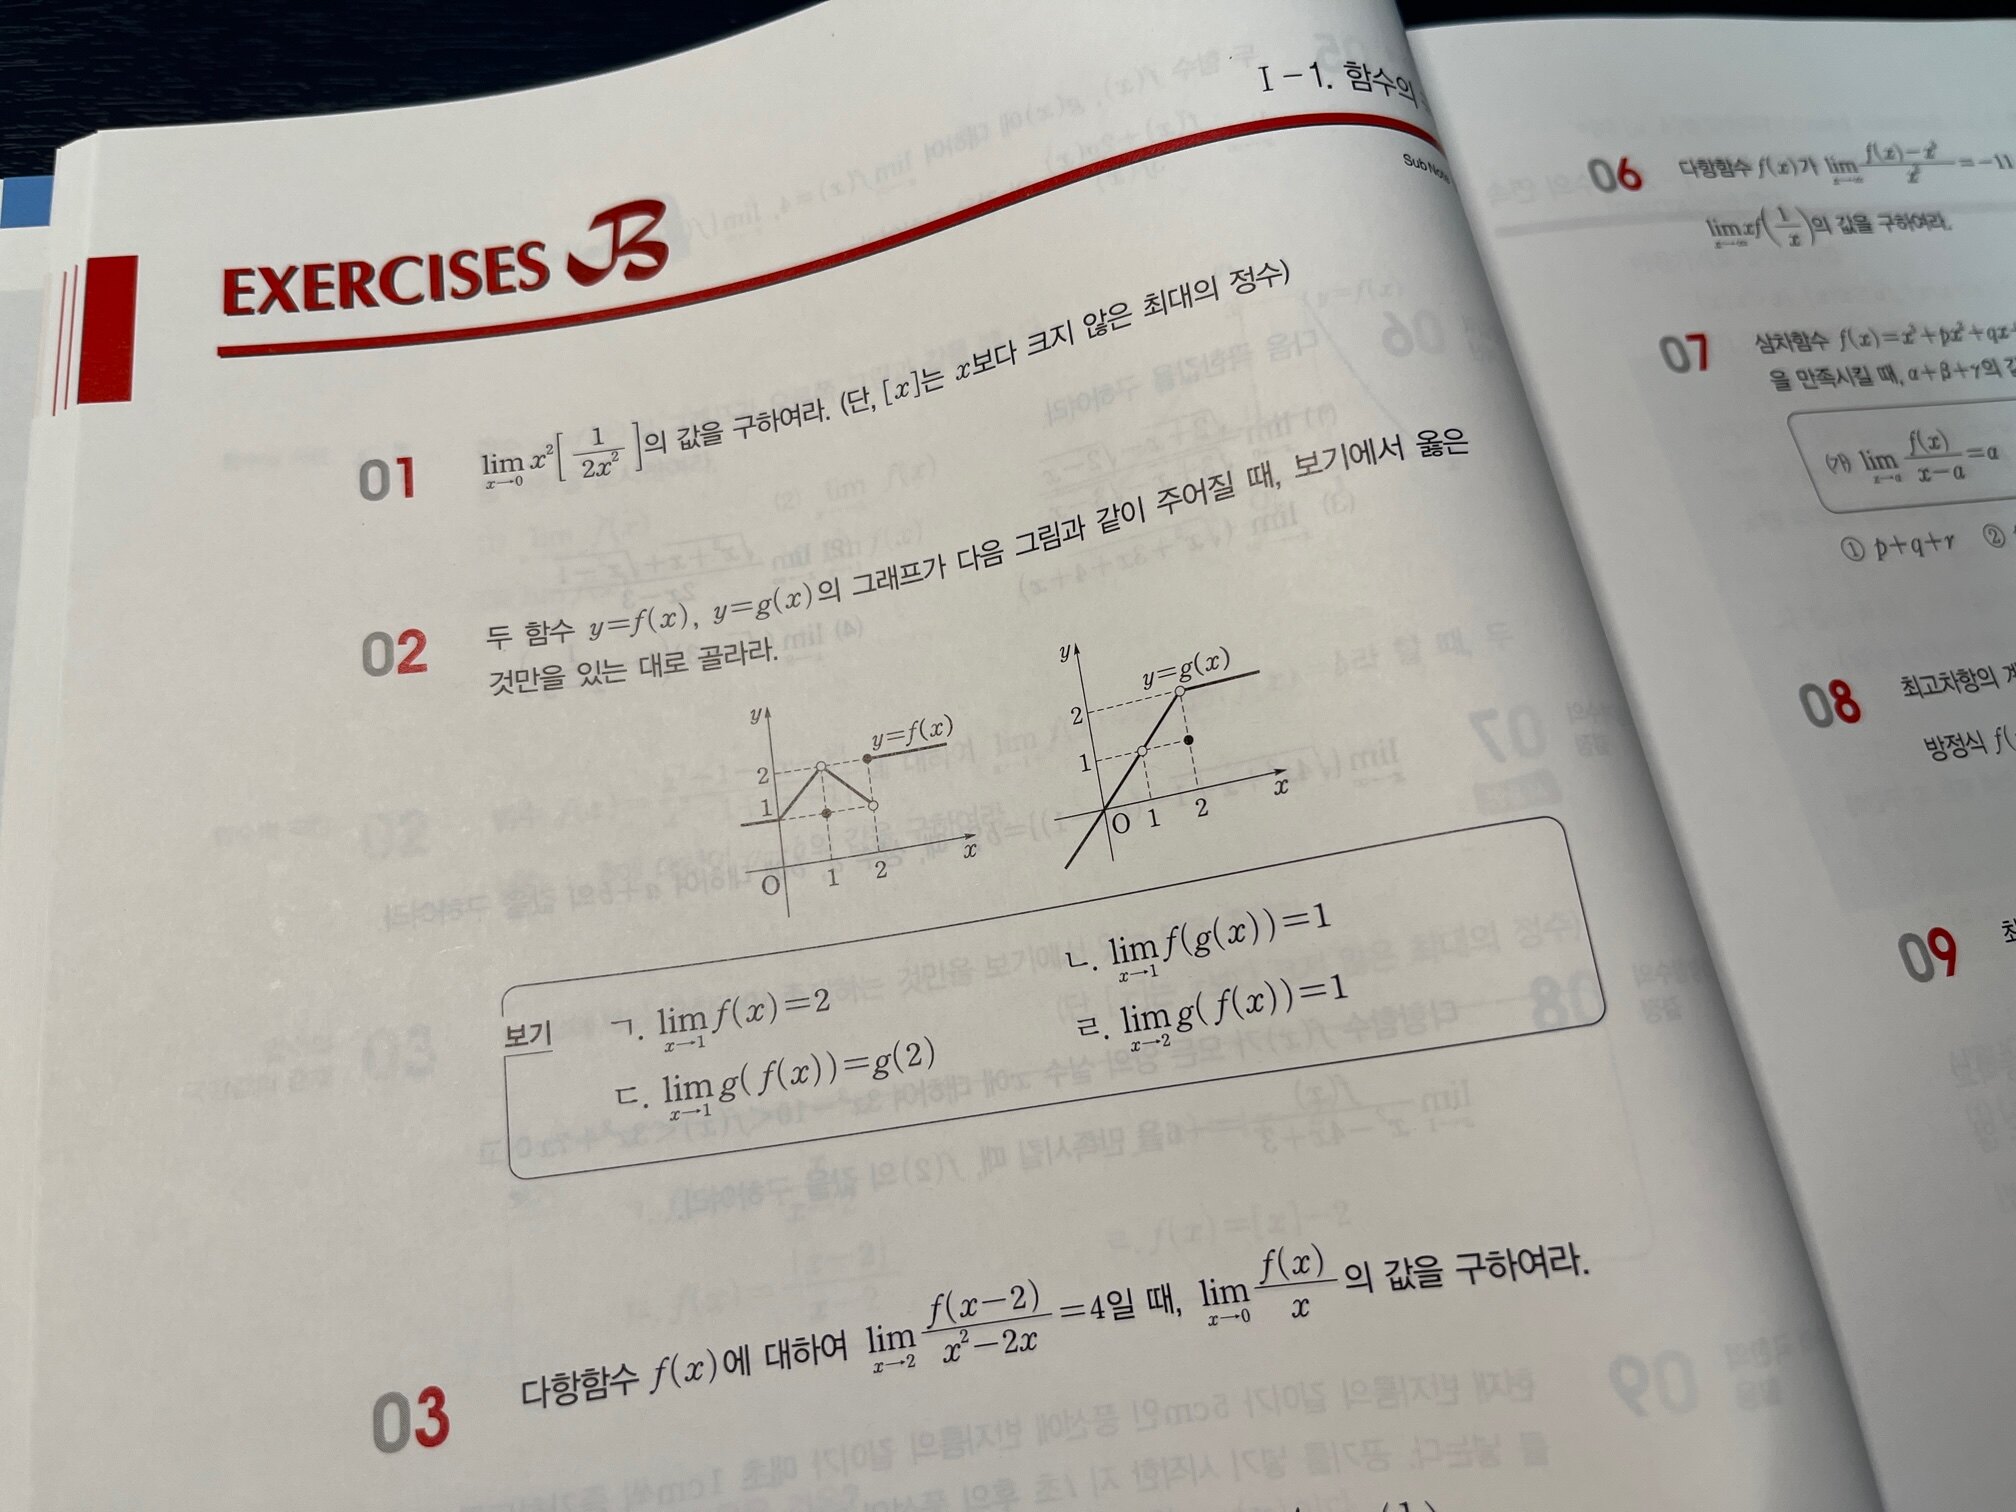 I-1. 함수의
Sub Note
EXERCISES B
01 lim x→0 x²[1/2x²]의 값을 구하여라. (단, [x]는 x보다 크지 않은 최대의 정수)
02 두 함수 y=f(x), y=g(x)의 그래프가 다음 그림과 같이 주어질 때, 보기에서 옳은
것만을 있는 대로 골라라.
y
2
1
O 1 2 x
y=f(x)
y
2
1
O 1 2 x
y=g(x)
보기
ㄱ. lim x→1 f(x)=2
ㄴ. lim x→1 f(g(x))=1
ㄷ. lim x→1 g(f(x))=g(2)
ㄹ. lim x→2 g(f(x))=1
03 다항함수 f(x)에 대하여 lim x→2 f(x-2)/x²-2x=4일 때, lim x→0 f(x)/x의 값을 구하여라.
06 다항함수 f(x)가 lim x→∞ f(x)-x³/x²=-11
lim x→∞ xf(1/x)의 값을 구하여라.
07 삼차함수 f(x)=x³+px²+qx+
을 만족시킬 때, α+β+γ의
(가) lim x→α f(x)/x-α=α
① p+q+r ②
08 최고차항의
방정식 f(
09